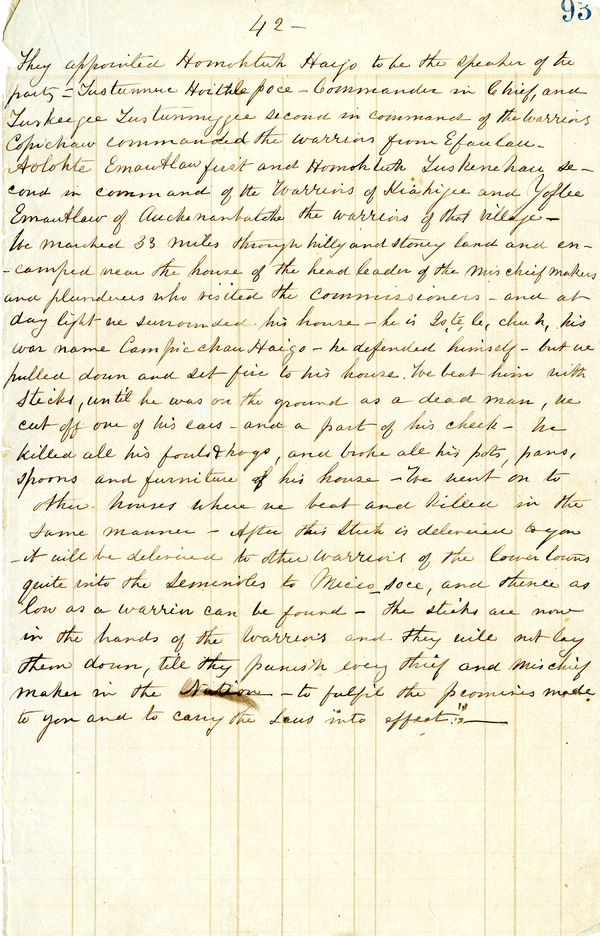 93
42 —
They appointed Homohtuh Haigo to be the speaker of the
party = Tustunnuc Hoithlepoce - Commander in Chief, and
Tuskegee Tustunnuggee second in command of the warriors
Copichaw commanded the warriors from Efaulau -
Aolohte Emautlaw first and Homohtuth Tuskenehau se-
cond in command of the Warriors of Kiahijee and Yoflee
Emautlaw of Auchenanhatche the warriors of that village -
We marched 33 miles through hilly and stoney land and en-
-camped near the house of the head leader of the mischief makers
and plunderers who visited the commissioners - and at
day light we surrounded his house - he is his
war name Campicchau Haigo - he defended himself - but we
pulled down and set fire to his house. We beat him with
sticks, until he was on the ground as a dead man, we
cut off one of his ears - and a part of his cheek - we
killed all his fouls & hogs, and broke all his pots, pans,
spoons and furniture of his house - We went on to
other houses where we beat and killed in the
same manner - After this Stick is delivered to you
- it will be delivered to other warriors of the lower towns
quite into the Seminoles to Micco_soce, and thence as
low as a warrior can be found - the sticks are now
in the hands of the Warriors and they will not lay
them down, till they punish every thief and mischief
maker in the Nation - to fulfil the promises made
to you and to carry the Laws into effect." —